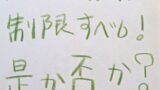 制限すべし!
是か否か?